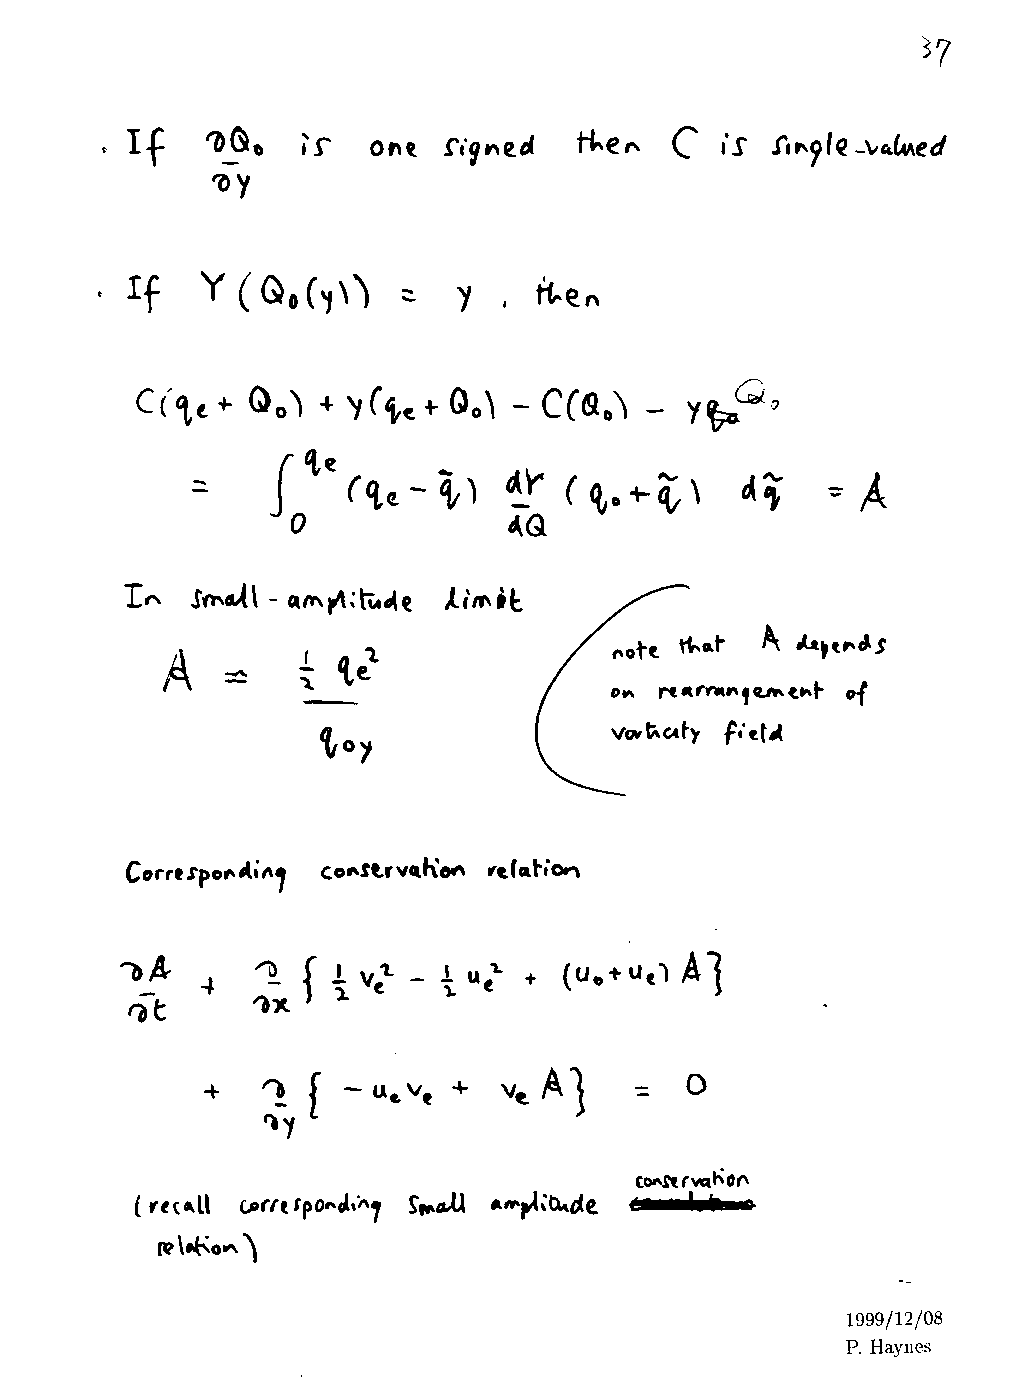 37
. If ∂Q₀/∂y is one signed then C is single-valued
. If Y(Q₀(y)) = y , then
C(qe + Q₀) + y(qe + Q₀) - C(Q₀) - yQ₀
= ∫₀^qe (qe - q̃) dY/dQ (q₀ + q̃) dq̃ = A
In small-amplitude limit
A ≈ ½ qe² / q₀y
note that A depends
on rearrangement of
vorticity field
Corresponding conservation relation
∂A/∂t + ∂/∂x { ½ ve² - ½ ue² + (u₀+ue) A }
+ ∂/∂y { - ue ve + ve A } = 0
(recall corresponding small amplitude conservation
relation)
1999/12/08
P. Haynes